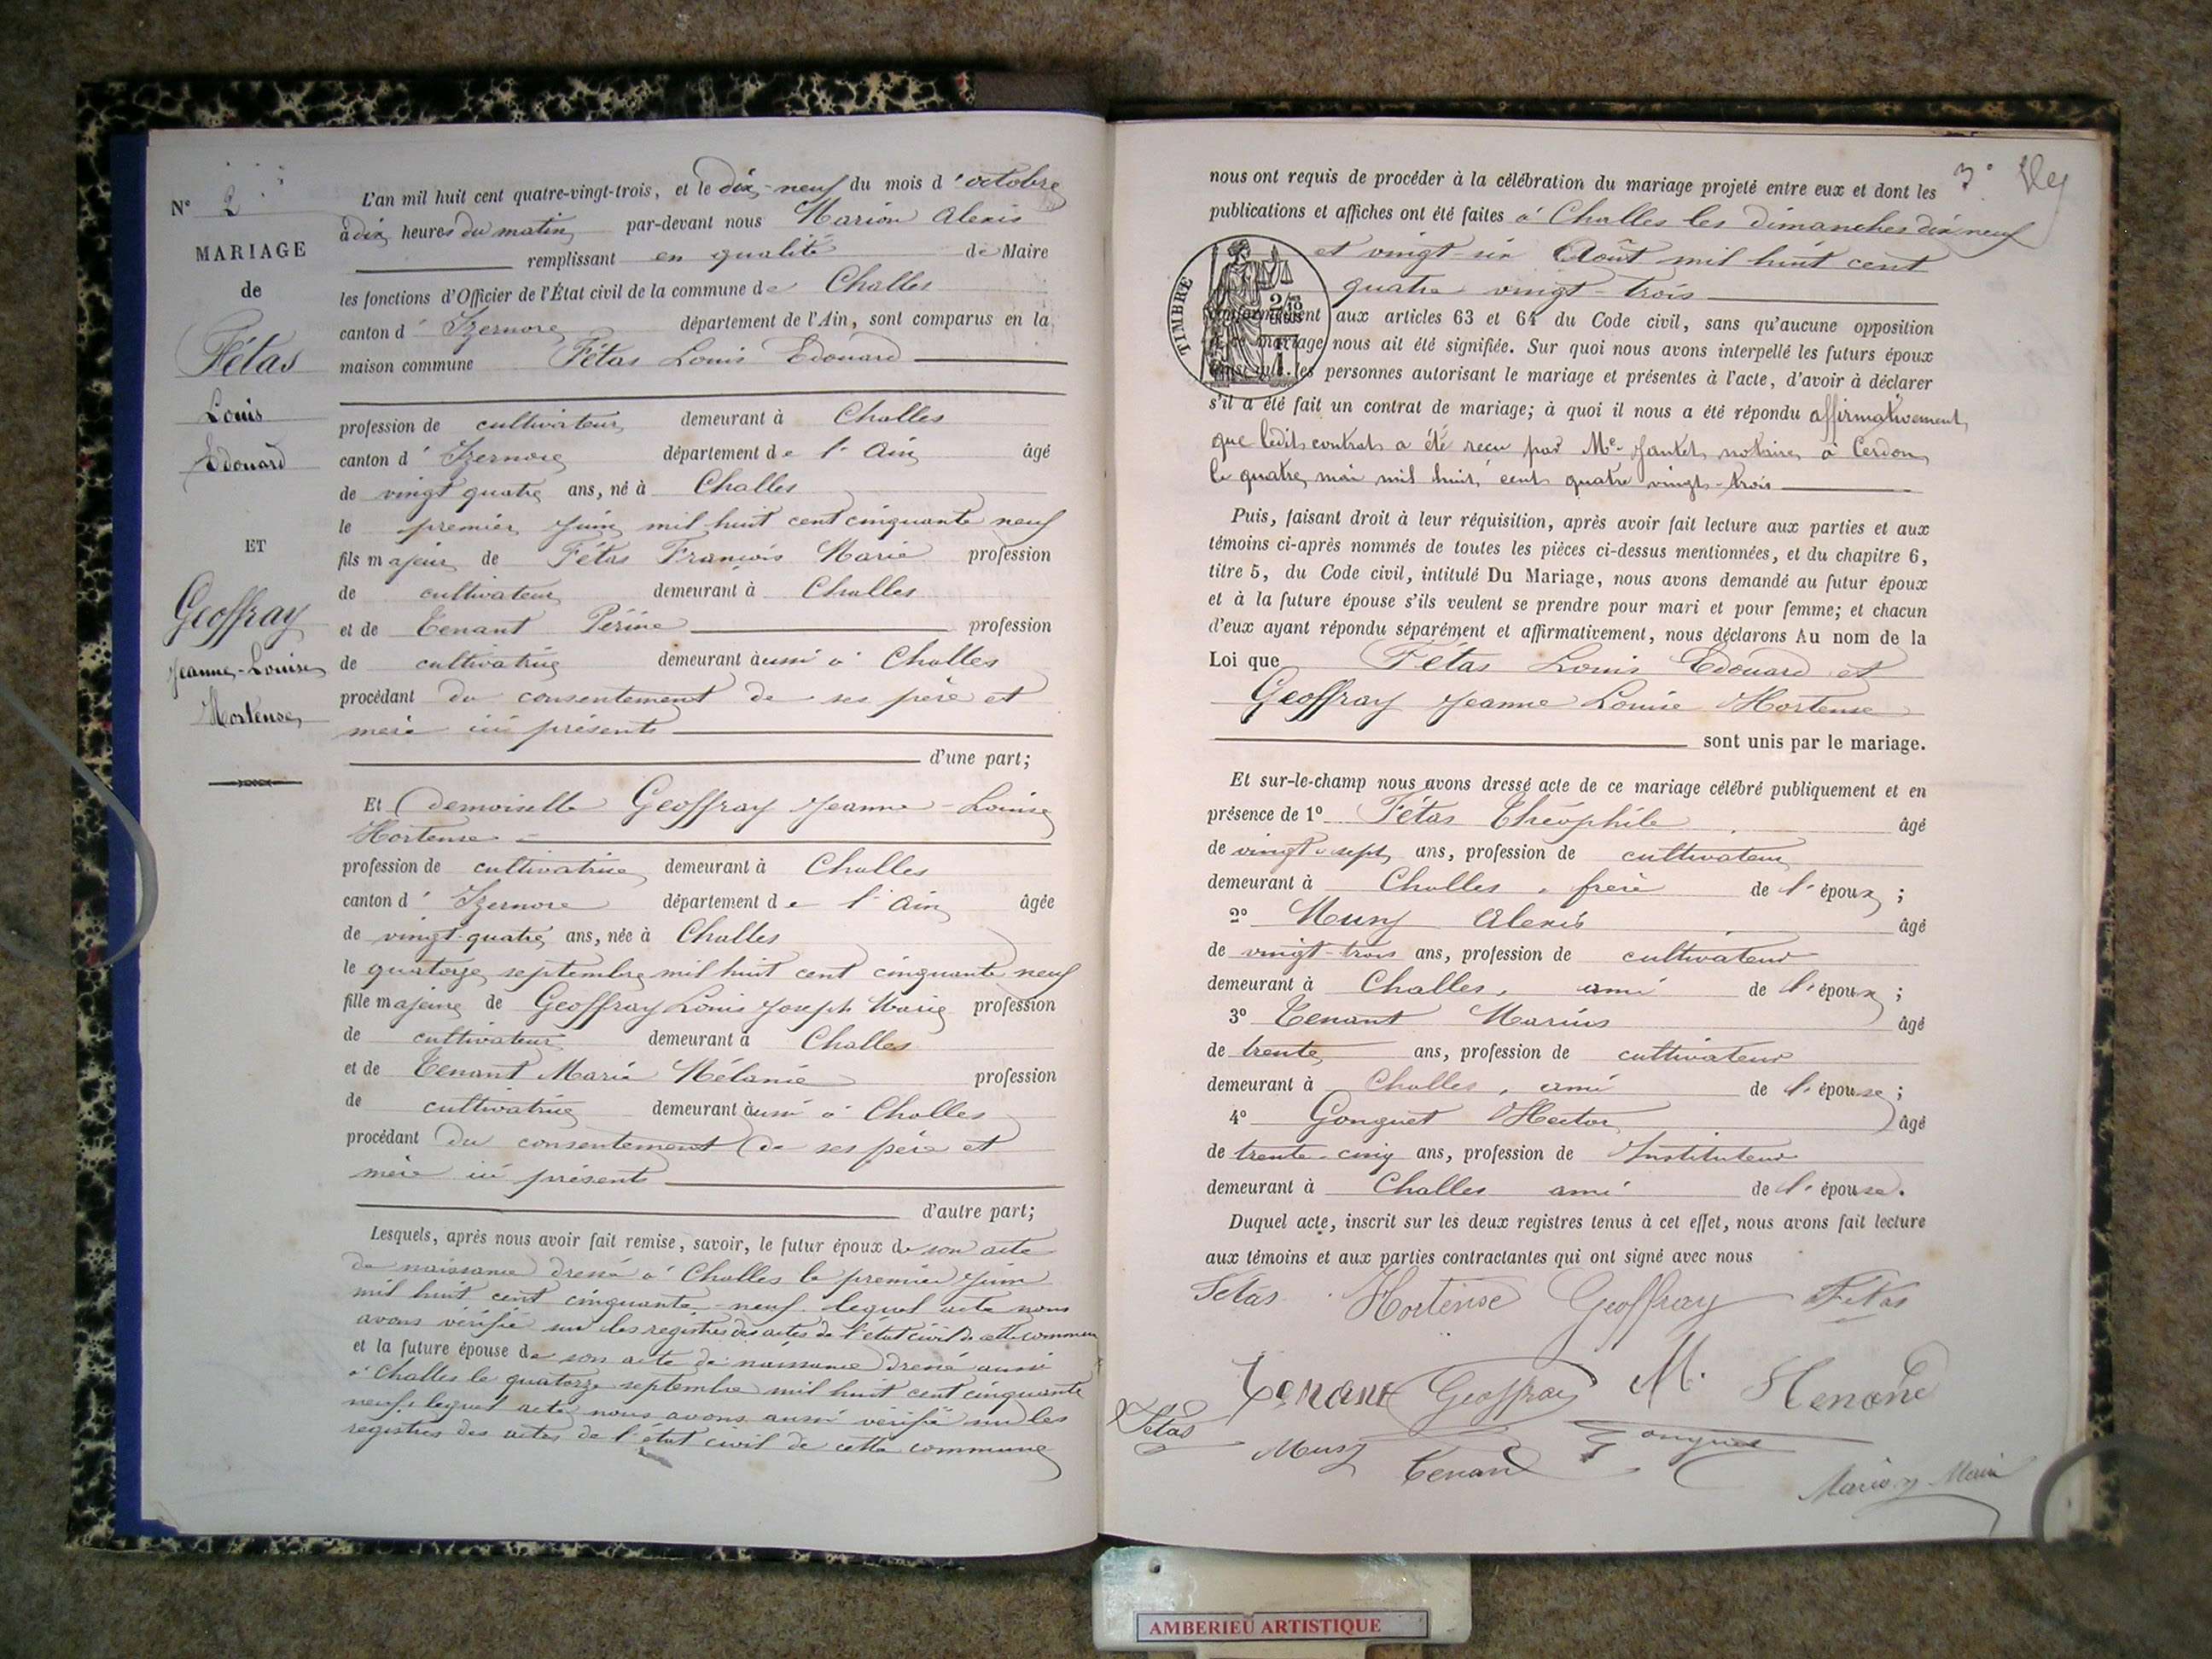 N° 2
MARIAGE
de
Fétas
Louis
Edouard
ET
Geoffray
Jeanne-Louise
Hortense
L'an mil huit cent quatre-vingt-trois, et le dix-neuf du mois d'octobre
à dix heures du matin par-devant nous Marion Alexis
remplissant en qualité de Maire
les fonctions d'Officier de l'État civil de la commune de Challes
canton d'Izernore département de l'Ain, sont comparus en la
maison commune Fétas Louis Edouard
profession de cultivateur demeurant à Challes
canton d'Izernore département de l'Ain âgé
de vingt quatre ans, né à Challes
le premier Juin mil huit cent cinquante neuf
fils majeur de Fétas François Marie profession
de cultivateur demeurant à Challes
et de Tenant Périne profession
de cultivatrice demeurant aussi à Challes
procédant du consentement de ses père et
mère ici présents
d'une part;
Et demoiselle Geoffray Jeanne-Louise
Hortense
profession de cultivatrice demeurant à Challes
canton d'Izernore département de l'Ain âgée
de vingt-quatre ans, née à Challes
le quatorze septembre mil huit cent cinquante neuf
fille majeure de Geoffray Louis Joseph Marie profession
de cultivateur demeurant à Challes
et de Tenant Marie Mélanie profession
de cultivatrice demeurant aussi à Challes
procédant du consentement de ses père et
mère ici présents
d'autre part;
Lesquels, après nous avoir fait remise, savoir, le futur époux de son acte
de naissance dressé à Challes le premier Juin
mil huit cent cinquante-neuf. lequel acte nous
avons vérifié sur les registres des actes de l'état civil de cette commune
et la future épouse de son acte de naissance dressé aussi
à Challes le quatorze septembre mil huit cent cinquante
neuf, lequel acte nous avons aussi vérifié sur les
registres des actes de l'état civil de cette commune
3°
nous ont requis de procéder à la célébration du mariage projeté entre eux et dont les
publications et affiches ont été faites à Challes les dimanches dix neuf
et vingt-six Août mil huit cent
quatre vingt-trois
TIMBRE
conformément aux articles 63 et 64 du Code civil, sans qu'aucune opposition
à ce mariage nous ait été signifiée. Sur quoi nous avons interpellé les futurs époux
ainsi que les personnes autorisant le mariage et présentes à l'acte, d'avoir à déclarer
s'il a été fait un contrat de mariage; à quoi il nous a été répondu affirmativement,
que ledit contrat a été reçu par Me Jantet, notaire, à Cerdon,
le quatre mai mil huit cent quatre vingt-trois
Puis, faisant droit à leur réquisition, après avoir fait lecture aux parties et aux
témoins ci-après nommés de toutes les pièces ci-dessus mentionnées, et du chapitre 6,
titre 5, du Code civil, intitulé Du Mariage, nous avons demandé au futur époux
et à la future épouse s'ils veulent se prendre pour mari et pour femme; et chacun
d'eux ayant répondu séparément et affirmativement, nous déclarons Au nom de la
Loi que Fétas Louis Edouard et
Geoffray Jeanne Louise Hortense
sont unis par le mariage.
Et sur-le-champ nous avons dressé acte de ce mariage célébré publiquement et en
présence de 1° Fétas Théophile âgé
de vingt-sept ans, profession de cultivateur
demeurant à Challes, frère de l'époux ;
2° Muny Alexis âgé
de vingt-trois ans, profession de cultivateur
demeurant à Challes, ami de l'époux ;
3° Tenant Marius âgé
de trente ans, profession de cultivateur
demeurant à Challes, ami de l'épouse ;
4° Gonguet Hector âgé
de trente-cinq ans, profession de Instituteur
demeurant à Challes ami de l'épouse.
Duquel acte, inscrit sur les deux registres tenus à cet effet, nous avons fait lecture
aux témoins et aux parties contractantes qui ont signé avec nous
Fetas Hortense Geoffray Fetas
Tenant Geoffray M. Tenant
Fetas Muny Tenant Gonguet
Marion Maire
AMBERIEU ARTISTIQUE